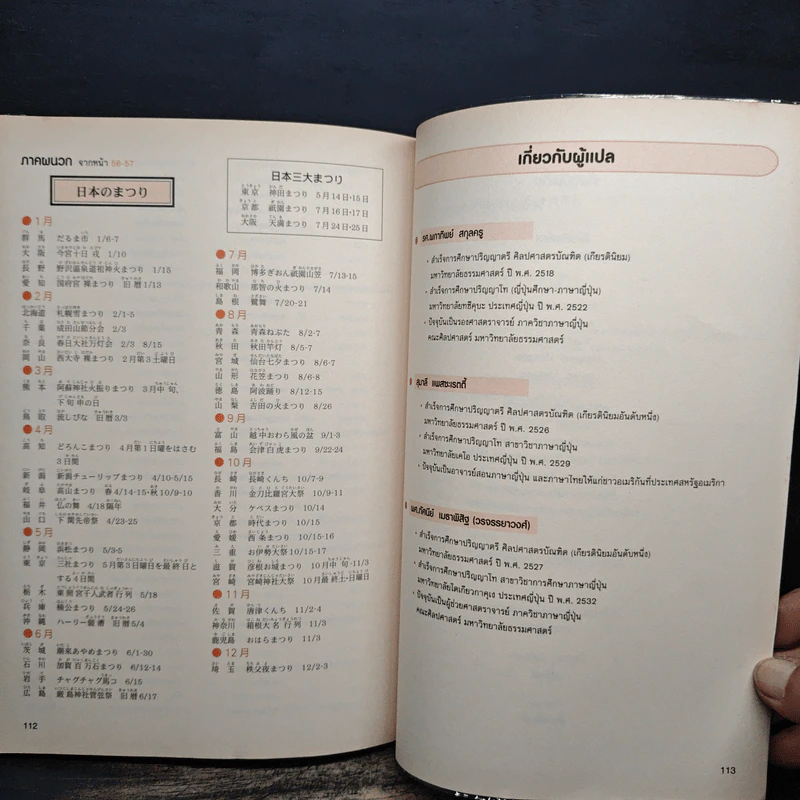 ภาคผนวก จากหน้า 56-57
日本のまつり
日本三大まつり
東京 神田まつり 5月14日・15日
京都 祇園まつり 7月16日・17日
大阪 天満まつり 7月24日・25日
1月
群馬 だるま市 1/6-7
大阪 今宮十日戎 1/10
長野 野沢温泉道祖神火まつり 1/15
愛知 国府宮裸まつり 旧暦1/13
2月
北海道 札幌雪まつり 2/1-5
千葉 成田山節分会 2/3
奈良 春日大社万灯会 2/3 8/15
岡山 西大寺裸まつり 2月第3土曜日
3月
熊本 阿蘇神社火振りまつり 3月中旬、
下旬申の日
鳥取 流しびな 旧暦3/3
4月
高知 どろんこまつり 4月第1日曜をはさむ
3日間
新潟 新潟チューリップまつり 4/10-5/15
岐阜 高山まつり 春4/14-15・秋10/9-10
福井 仏の舞 4/18隔年
山口 下関先帝祭 4/23-25
5月
静岡 浜松まつり 5/3-5
東京 三社まつり 5月第3日曜を最終日と
する4日間
栃木 東照宮千人武者行列 5/18
兵庫 楠公まつり 5/24-26
沖縄 ハーリー龍書 旧暦5/4
6月
茨城 潮来あやめまつり 6/1-30
石川 加賀百万石まつり 6/12-14
岩手 チャグチャグ馬コ 6/15
広島 厳島神社管弦祭 旧暦6/17
7月
福岡 博多ぎおん祇園山笠 7/13-15
和歌山 那智の火まつり 7/14
島根 鷺舞 7/20-21
8月
青森 青森ねぶた 8/2-7
秋田 秋田竿灯 8/5-7
宮城 仙台七夕まつり 8/6-8
山形 花笠まつり 8/6-8
徳島 阿波踊り 8/12-15
山梨 吉田の火まつり 8/26
9月
富山 越中おわら風の盆 9/1-3
福島 会津白虎まつり 9/22-24
10月
長崎 長崎くんち 10/7-9
香川 金刀比羅宮大祭 10/9-11
大分 ケベスまつり 10/14
京都 時代まつり 10/15
愛媛 西条まつり 10/15-16
三重 お伊勢大祭 10/15-17
滋賀 彦根お城まつり 10月中旬-11/3
宮崎 宮崎神社大祭 10月最終土・日曜日
11月
佐賀 唐津くんち 11/2-4
神奈川 箱根大名行列 11/3
鹿児島 おはらまつり 11/3
12月
埼玉 秩父夜まつり 12/2-3
112
เกี่ยวกับผู้แปล
รศ.ผกาทิพย์ สกุลครู
• สำเร็จการศึกษาปริญญาตรี ศิลปศาสตรบัณฑิต (เกียรตินิยม)
มหาวิทยาลัยธรรมศาสตร์ ปี พ.ศ. 2518
• สำเร็จการศึกษาปริญญาโท (ญี่ปุ่นศึกษา-ภาษาญี่ปุ่น)
มหาวิทยาลัยทซึคุบะ ประเทศญี่ปุ่น ปี พ.ศ. 2522
• ปัจจุบันเป็นรองศาสตราจารย์ ภาควิชาภาษาญี่ปุ่น
คณะศิลปศาสตร์ มหาวิทยาลัยธรรมศาสตร์
สุมาลี แพสซะเรตตี้
• สำเร็จการศึกษาปริญญาตรี ศิลปศาสตรบัณฑิต (เกียรตินิยมอันดับหนึ่ง)
มหาวิทยาลัยธรรมศาสตร์ ปี พ.ศ. 2526
• สำเร็จการศึกษาปริญญาโท สาขาวิชาภาษาญี่ปุ่น
มหาวิทยาลัยเคโอ ประเทศญี่ปุ่น ปี พ.ศ. 2529
• ปัจจุบันเป็นอาจารย์สอนภาษาญี่ปุ่น และภาษาไทยให้แก่ชาวอเมริกันที่ประเทศสหรัฐอเมริกา
ผศ.ภัคนีย์ เมธาพิสิฐ (วรจรรยาวงศ์)
• สำเร็จการศึกษาปริญญาตรี ศิลปศาสตรบัณฑิต (เกียรตินิยมอันดับหนึ่ง)
มหาวิทยาลัยธรรมศาสตร์ ปี พ.ศ. 2527
• สำเร็จการศึกษาปริญญาโท สาขาวิชาการศึกษาภาษาญี่ปุ่น
มหาวิทยาลัยโตเกียวกาคุเง ประเทศญี่ปุ่น ปี พ.ศ. 2532
• ปัจจุบันเป็นผู้ช่วยศาสตราจารย์ ภาควิชาภาษาญี่ปุ่น
คณะศิลปศาสตร์ มหาวิทยาลัยธรรมศาสตร์
113